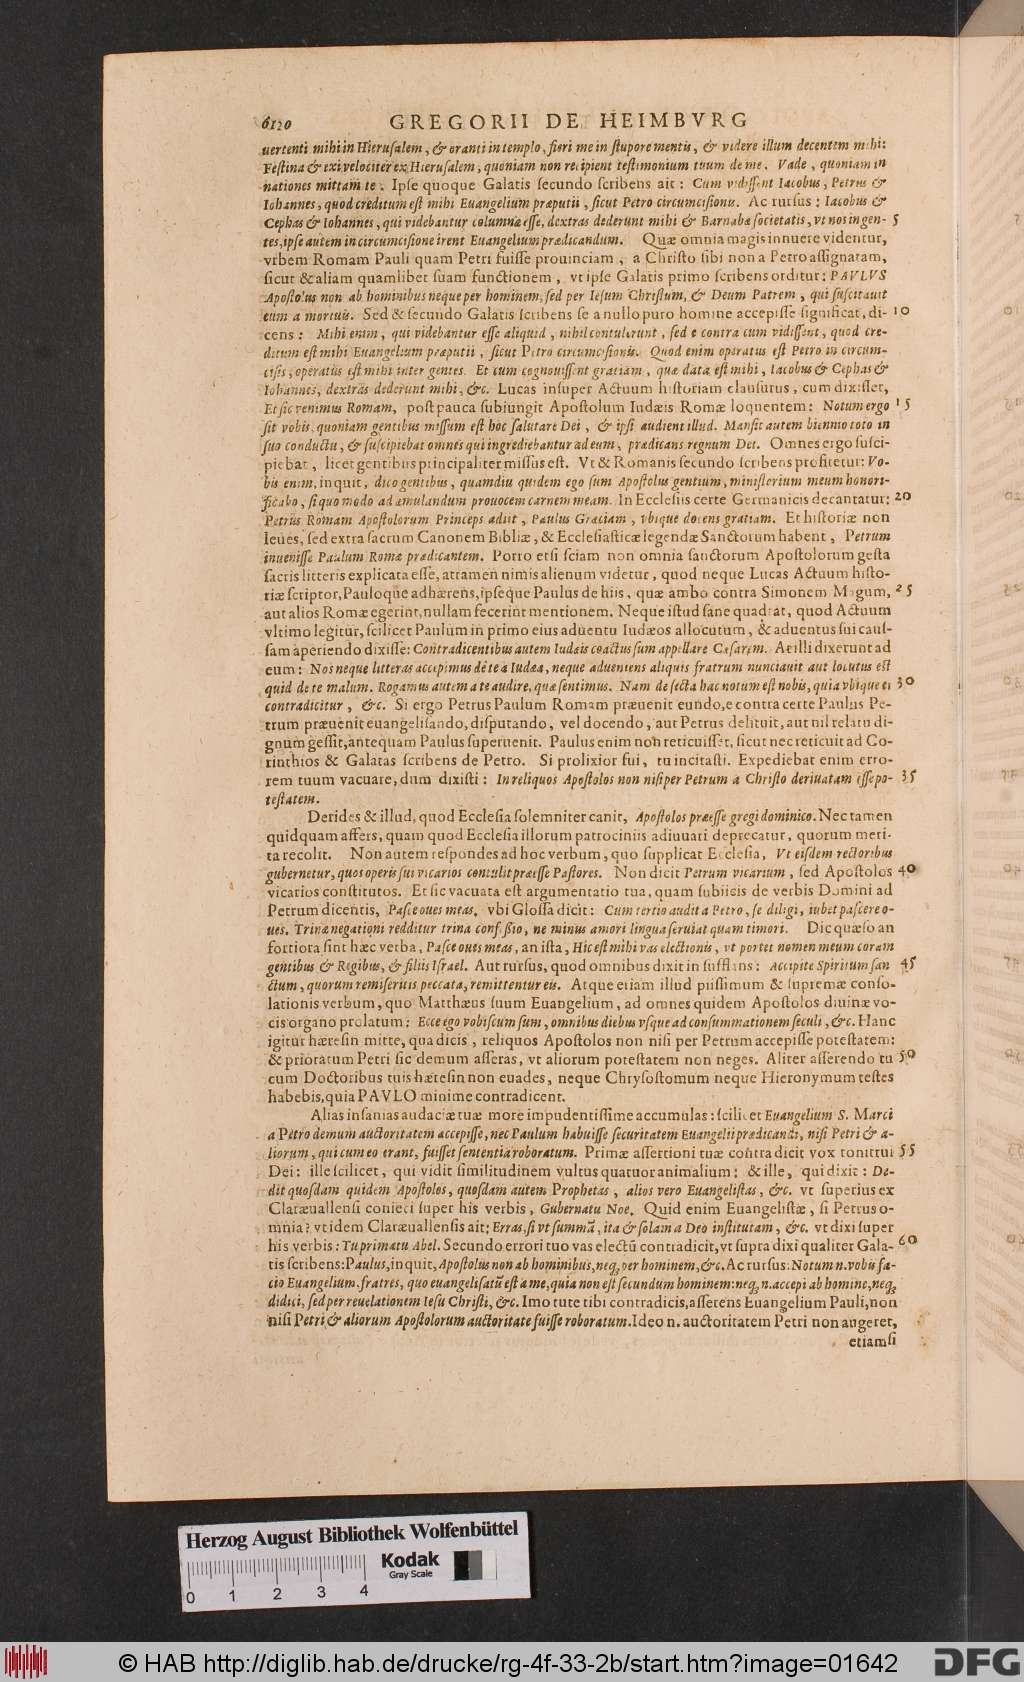 6120 GREGORII DE HEIMBVRG
uertenti mihi in Hierusalem, & oranti in templo, fieri me in stupore mentis, & videre illum decentem mihi:
Festina & exi velociter ex Hierusalem, quoniam non recipient testimonium tuum de me. Vade, quoniam in
nationes mittam te. Ipse quoque Galatis secundo scribens ait: Cum vidissent Iacobus, Petrus &
Iohannes, quod creditum est mihi Euangelium præputii, sicut Petro circumcisionis. Ac rursus: Iacobus &
Cephas & Iohannes, qui videbantur columnæ esse, dextras dederunt mihi & Barnabæ societatis, vt nos in gen- 5
tes, ipse autem in circumcisione irent Euangelium prædicandum. Quæ omnia magis innuere videntur,
vrbem Romam Pauli quam Petri fuisse prouinciam, a Christo sibi non a Petro assignatam,
sicut & aliam quamlibet suam functionem, vt ipse Galatis primo scribens orditur: PAVLVS
Apostolus non ab hominibus neque per hominem, sed per Iesum Christum, & Deum Patrem, qui suscitauit
eum a mortuis. Sed & secundo Galatis scribens se a nullo puro homine accepisse significat, di- 10
cens: Mihi enim, qui videbantur esse aliquid, nihil contulerunt, sed e contra cum vidissent, quod cre-
ditum est mihi Euangelium præputii, sicut Petro circumcisionis. Quod enim operatus est Petro in circum-
cisis, operatus est mihi inter gentes. Et cum cognouissent gratiam, quæ data est mihi, Iacobus & Cephas &
Iohannes, dextras dederunt mihi, &c. Lucas insuper Actuum historiam clausurus, cum dixisset,
Et sic venimus Romam, post pauca subiungit Apostolum Iudæis Romæ loquentem: Notum ergo 15
sit vobis, quoniam gentibus missum est hoc salutare Dei, & ipsi audient illud. Mansit autem biennio toto in
suo conductu, & suscipiebat omnes qui ingrediebantur ad eum, prædicans regnum Dei. Omnes ergo susci-
piebat, licet gentibus principaliter missus est. Vt & Romanis secundo scribens profitetur: Vo-
bis enim, inquit, dico gentibus, quamdiu quidem ego sum Apostolus gentium, ministerium meum honori-
ficabo, si quo modo ad æmulandum prouocem carnem meam. In Ecclesiis certe Germanicis decantatur: 20
Petrus Romam Apostolorum Princeps adiit, Paulus Græciam, vbique docens gratiam. Et historiæ non
leues, sed extra sacrum Canonem Bibliæ, & Ecclesiasticæ legendæ Sanctorum habent, Petrum
inuenisse Paulum Romæ prædicantem. Porro etsi sciam non omnia sanctorum Apostolorum gesta
sacris litteris explicata esse, attamen nimis alienum videtur, quod neque Lucas Actuum histo-
riæ scriptor, Pauloque adhærens, ipseque Paulus de hiis, quæ ambo contra Simonem Magum, 25
aut alios Romæ egerint, nullam fecerint mentionem. Neque istud sane quadrat, quod Actuum
vltimo legitur, scilicet Paulum in primo eius aduentu Iudæos allocutum, & aduentus sui caus-
sam aperiendo dixisse: Contradicentibus autem Iudæis coactus sum appellare Cæsarem. At illi dixerunt ad
eum: Nos neque litteras accepimus de te a Iudæa, neque adueniens aliquis fratrum nunciauit aut locutus est
quid de te malum. Rogamus autem a te audire, quæ sentimus. Nam de secta hac notum est nobis, quia vbique ei 30
contradicitur, &c. Si ergo Petrus Paulum Romam præuenit eundo, e contra certe Paulus Pe-
trum præuenit euangelisando, disputando, vel docendo, aut Petrus delituit, aut nil relatu di-
gnum gessit, antequam Paulus superuenit. Paulus enim non reticuisset, sicut nec reticuit ad Co-
rinthios & Galatas scribens de Petro. Si prolixior fui, tu incitasti. Expediebat enim erro-
rem tuum vacuare, dum dixisti: In reliquos Apostolos non nisi per Petrum a Christo deriuatam esse po- 35
testatem.
Derides & illud, quod Ecclesia solemniter canit, Apostolos præesse gregi dominico. Nec tamen
quidquam affers, quam quod Ecclesia illorum patrociniis adiuuari deprecatur, quorum meri-
ta recolit. Non autem respondes ad hoc verbum, quo supplicat Ecclesia, Vt eisdem rectoribus
gubernetur, quos operis sui vicarios contulit præesse Pastores. Non dicit Petrum vicarium, sed Apostolos 40
vicarios constitutos. Et sic vacuata est argumentatio tua, quam subiicis de verbis Domini ad
Petrum dicentis, Pasce oues meas, vbi Glossa dicit: Cum tertio audit a Petro, se diligi, iubet pascere o-
ues. Trinæ negationi redditur trina confessio, ne minus amori lingua seruiat quam timori. Dic quæso an
fortiora sint hæc verba, Pasce oues meas, an ista, Hic est mihi vas electionis, vt portet nomen meum coram
gentibus & Regibus, & filiis Israel. Aut rursus, quod omnibus dixit in sufflans: Accipite Spiritum san 45
ctum, quorum remiseritis peccata, remittentur eis. Atque etiam illud piissimum & supremæ conso-
lationis verbum, quo Matthæus suum Euangelium, ad omnes quidem Apostolos diuinæ vo-
cis organo prolatum: Ecce ego vobiscum sum, omnibus diebus vsque ad consummationem seculi, &c. Hanc
igitur hæresin mitte, qua dicis, reliquos Apostolos non nisi per Petrum accepisse potestatem:
& prioratum Petri sic demum asseras, vt aliorum potestatem non neges. Aliter asserendo tu 50
cum Doctoribus tuis hæresin non euades, neque Chrysostomum neque Hieronymum testes
habebis, quia PAVLO minime contradicent.
Alias insanias audaciæ tuæ more impudentissime accumulas: scilicet Euangelium S. Marci
a Petro demum auctoritatem accepisse, nec Paulum habuisse securitatem Euangelii prædicandi, nisi Petri & a-
liorum, qui cum eo erant, fuisset sententia roboratum. Primæ assertioni tuæ contradicit vox tonitrui 55
Dei: ille scilicet, qui vidit similitudinem vultus quatuor animalium: & ille, qui dixit: De-
dit quosdam quidem Apostolos, quosdam autem Prophetas, alios vero Euangelistas, &c. vt superius ex
Claræuallensi conieci super his verbis, Gubernatu Noe. Quid enim Euangelistæ, si Petrus o-
mnia? vt idem Claræuallensis ait: Erras, si vt summã, ita & solam a Deo institutam, &c. vt dixi super
his verbis: Tu primatu Abel. Secundo errori tuo vas electũ contradicit, vt supra dixi qualiter Gala- 60
tis scribens: Paulus, inquit, Apostolus non ab hominibus, neq; per hominem, &c. Ac rursus: Notum n. vobis fa-
cio Euangelium, fratres, quo euangelisatũ est a me, quia non est secundum hominem: neq; n. accepi ab homine, neq;
didici, sed per reuelationem Iesu Christi, &c. Imo tute tibi contradicis, asserens Euangelium Pauli, non
nisi Petri & aliorum Apostolorum auctoritate fuisse roboratum. Ideo n. auctoritatem Petri non augeret,
etiamsi
Herzog August Bibliothek Wolfenbüttel
Kodak
Gray Scale
0 1 2 3 4
© HAB http://diglib.hab.de/drucke/rg-4f-33-2b/start.htm?image=01642
DFG